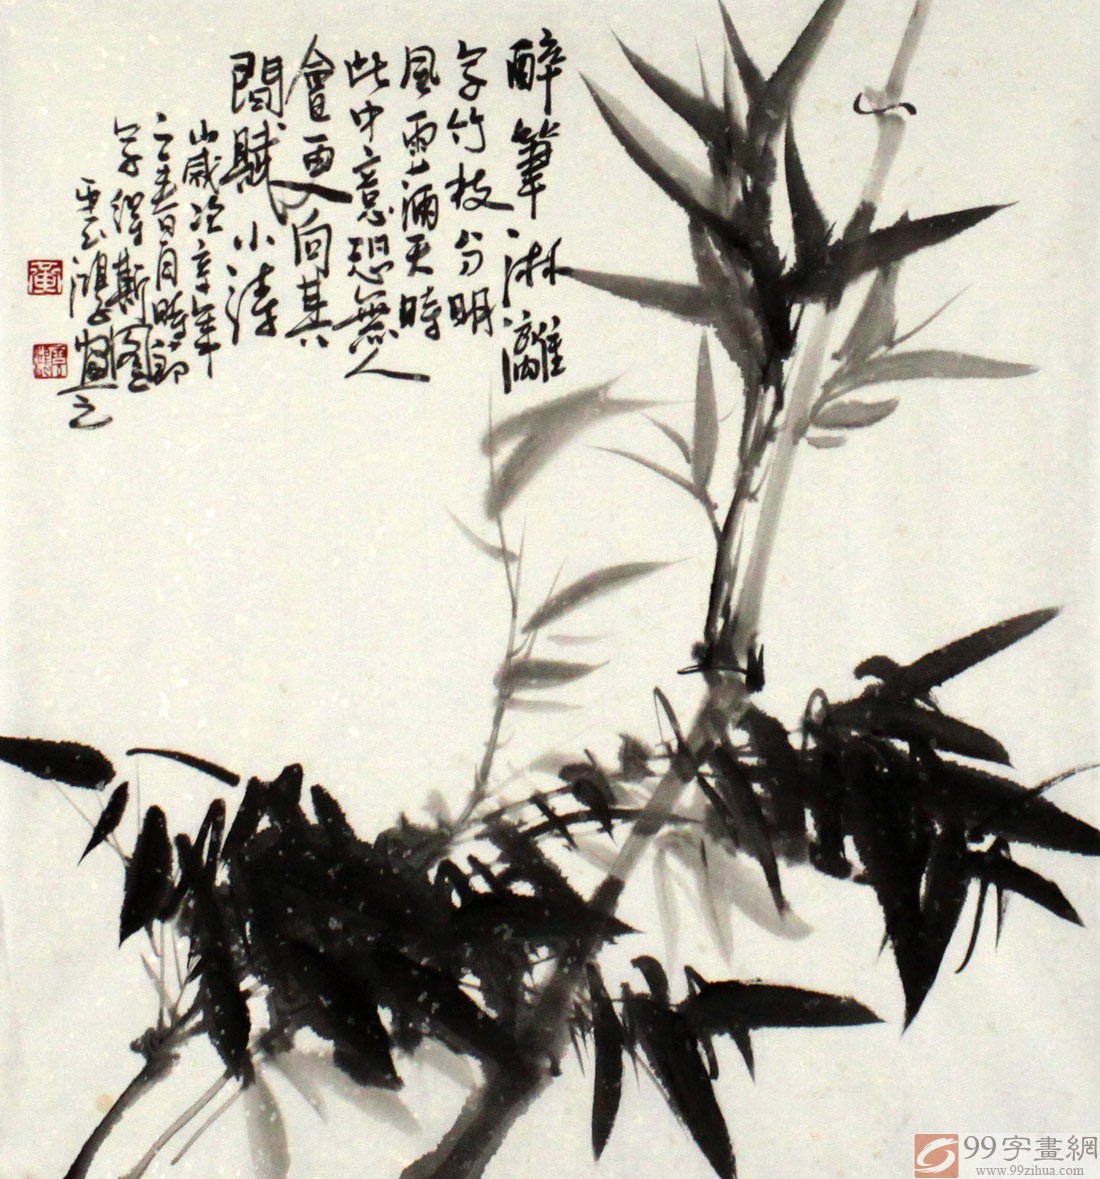 醉筆淋灕
写竹枝分明
風雨滿天時
此中意恐無人
會更向其
間賦小詩
歲次辛卯年
之春日月時節
写得斯圖
畫之
99字畫網
www.99zihua.com